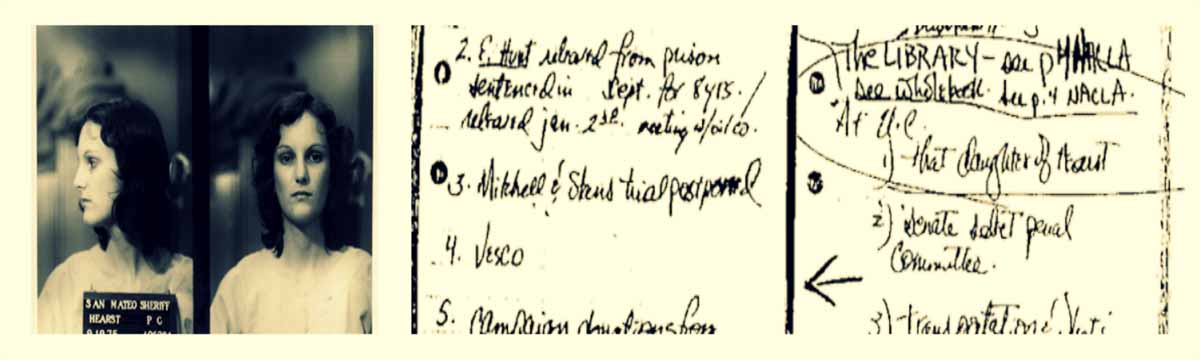 SAN MATEO SHERIFF
HEARST P C
2. E. Hunt released from prison
sentenced in Sept. for 8 yrs. /
released jan. 2nd. meeting w/
3. Mitchell & Stans trial postponed
4. VESCO
5. Campaign donations from
The LIBRARY - see p 4 NACLA
see whole book. See p. 4 NACLA.
"At U.C.
1) that daughter of Hearst
2) senate select penal
Committee.
3) transportation &